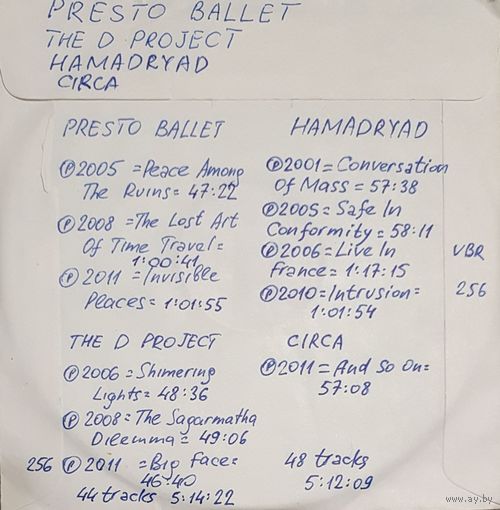 PRESTO BALLET
THE D PROJECT
HAMADRYAD
CIRCA
PRESTO BALLET
Ⓟ2005 =Peace Among
The Ruins= 47:22
Ⓟ2008 =The Lost Art
Of Time Travel=
1:00:41
Ⓟ2011 =Invisible
Places= 1:01:55
THE D PROJECT
Ⓟ2006 =Shimering
Lights= 48:36
Ⓟ2008=The Sagarmatha
Dilemma= 49:06
256 Ⓟ2011 =Big Face=
46:40
44 tracks 5:14:22
HAMADRYAD
Ⓟ2001=Conversation
Of Mass = 57:38
Ⓟ2005=Safe In
Conformity = 58:11
Ⓟ2006=Live In
France = 1:17:15
VBR
Ⓟ2010=Intrusion=
1:01:54
256
CIRCA
Ⓟ2011=And So On=
57:08
48 tracks
5:12:09
www.ay.by